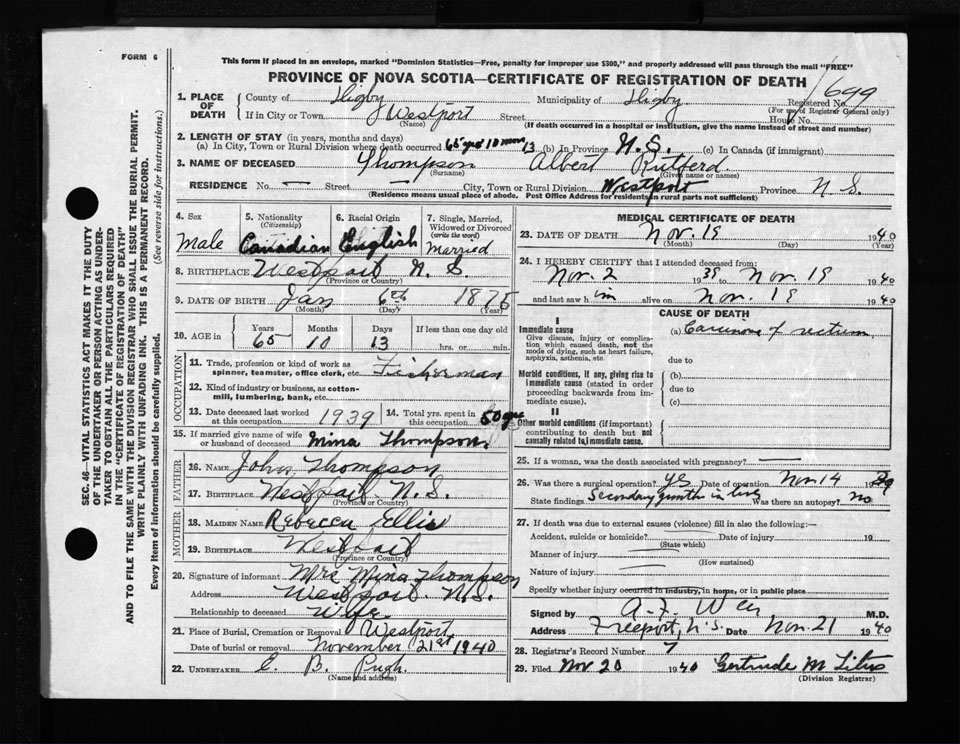 FORM 6
This form if placed in an envelope, marked "Dominion Statistics—Free, penalty for improper use $300," and properly addressed will pass through the mail "FREE"
PROVINCE OF NOVA SCOTIA—CERTIFICATE OF REGISTRATION OF DEATH
SEC. 46—VITAL STATISTICS ACT MAKES IT THE DUTY
OF THE UNDERTAKER OR PERSON ACTING AS UNDER-
TAKER TO OBTAIN ALL THE PARTICULARS REQUIRED
IN THE "CERTIFICATE OF REGISTRATION OF DEATH"
AND TO FILE THE SAME WITH THE DIVISION REGISTRAR WHO SHALL ISSUE THE BURIAL PERMIT.
WRITE PLAINLY WITH UNFADING INK. THIS IS A PERMANENT RECORD.
Every item of information should be carefully supplied. (See reverse side for instructions.)
1. PLACE OF DEATH
County of Digby Municipality of Digby Registered No. 1699
(For use of Registrar General only)
If in City or Town Westport Street House No.
(Name) (If death occurred in a hospital or institution, give the name instead of street and number)
2. LENGTH OF STAY (in years, months and days)
(a) In City, Town or Rural Division where death occurred 65 yrs 10 mons 13 (b) In Province N.S. (c) In Canada (if immigrant)
3. NAME OF DECEASED Thompson Albert Rutherd
(Surname) (Given name or names)
RESIDENCE No. — Street — City, Town or Rural Division Westport Province N.S.
(Residence means usual place of abode. Post Office Address for residents in rural parts not sufficient)
4. Sex
Male
5. Nationality
(Citizenship)
Canadian
6. Racial Origin
English
7. Single, Married,
Widowed or Divorced
(write the word)
Married
8. BIRTHPLACE Westport N.S.
(Province or Country)
9. DATE OF BIRTH Jan 6th 1875
(Month) (Day) (Year)
10. AGE in
Years Months Days If less than one day old
65 10 13 hrs. or min.
OCCUPATION
11. Trade, profession or kind of work as
spinner, teamster, office clerk, etc. Fisherman
12. Kind of industry or business, as cotton-
mill, lumbering, bank, etc.
13. Date deceased last worked
at this occupation 1939
14. Total yrs. spent in
this occupation 50 yrs
15. If married give name of wife
or husband of deceased Mina Thompson
FATHER
16. NAME John Thompson
17. BIRTHPLACE Westport N.S.
(Province or Country)
MOTHER
18. MAIDEN NAME Rebecca Ellis
19. BIRTHPLACE Westport
(Province or Country)
20. Signature of informant Mrs Mina Thompson
Address Westport N.S.
Relationship to deceased Wife
21. Place of Burial, Cremation or Removal Westport
Date of burial or removal November 21st 1940
22. UNDERTAKER C. B. Pugh
(Name and address)
MEDICAL CERTIFICATE OF DEATH
23. DATE OF DEATH Nov. 19 1940
(Month) (Day) (Year)
24. I HEREBY CERTIFY that I attended deceased from:
Nov. 2 1939 to Nov. 19 1940
and last saw him alive on Nov. 18 1940
CAUSE OF DEATH
I
Immediate cause
Give disease, injury or complica-
tion which caused death, not the
mode of dying, such as heart failure,
asphyxia, asthenia, etc.
(a) Carcinoma of rectum
due to
Morbid conditions, if any, giving rise to
immediate cause (stated in order
proceeding backwards from im-
mediate cause).
(b)
due to
(c)
II
Other morbid conditions (if important)
contributing to death but not
causally related to immediate cause.
25. If a woman, was the death associated with pregnancy? —
26. Was there a surgical operation? yes Date of operation Nov 14 1939
State findings Secondary growth in liver Was there an autopsy? no
27. If death was due to external causes (violence) fill in also the following:—
Accident, suicide or homicide? Date of injury 19
(State which)
Manner of injury
(How sustained)
Nature of injury
Specify whether injury occurred in industry, in home, or in public place
Signed by A. F. Weir M.D.
Address Freeport, N.S. Date Nov. 21 1940
28. Registrar's Record Number 7
29. Filed Nov 20 1940 Gertrude M Titus
(Division Registrar)